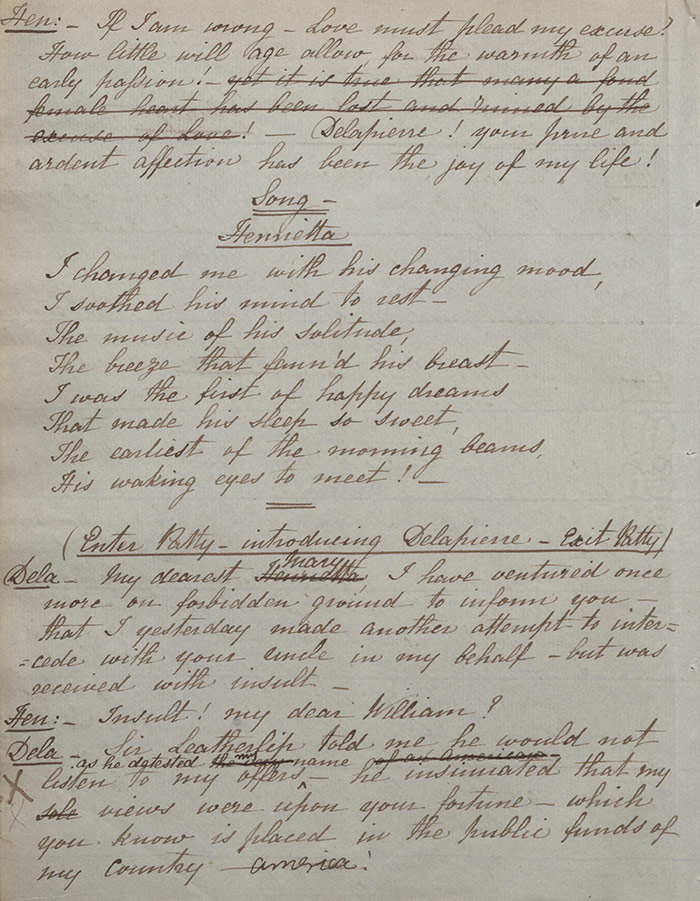 Hen:- If I am wrong - Love must plead my excuse!
How little will age allow for the warmth of an
early passion! - yet it is true that many a fond
female heart has been lost and ruined by the
excuse of Love! - Delapierre! your pure and
ardent affection has been the joy of my life!
Song -
Henrietta
I changed me with his changing mood,
I soothed his mind to rest -
The music of his solitude,
The breeze that fann'd his breast -
I was the first of happy dreams
That made his sleep so sweet,
The earliest of the morning beams,
His waking eyes to meet! -
(Enter Patty - introducing Delapierre - Exit Patty)
Mary
Dela - My dearest Henrietta, I have ventured once
more on forbidden ground to inform you -
that I yesterday made another attempt to inter=
=cede with your uncle in my behalf - but was
received with insult -
Hen:- Insult! my dear William?
Dela - Sir Leatherlip told me he would not
as he detested the very my name of an American
X listen to my offers - he insinuated that my
sole views were upon your fortune - which
you know is placed in the public funds of
my country - america!